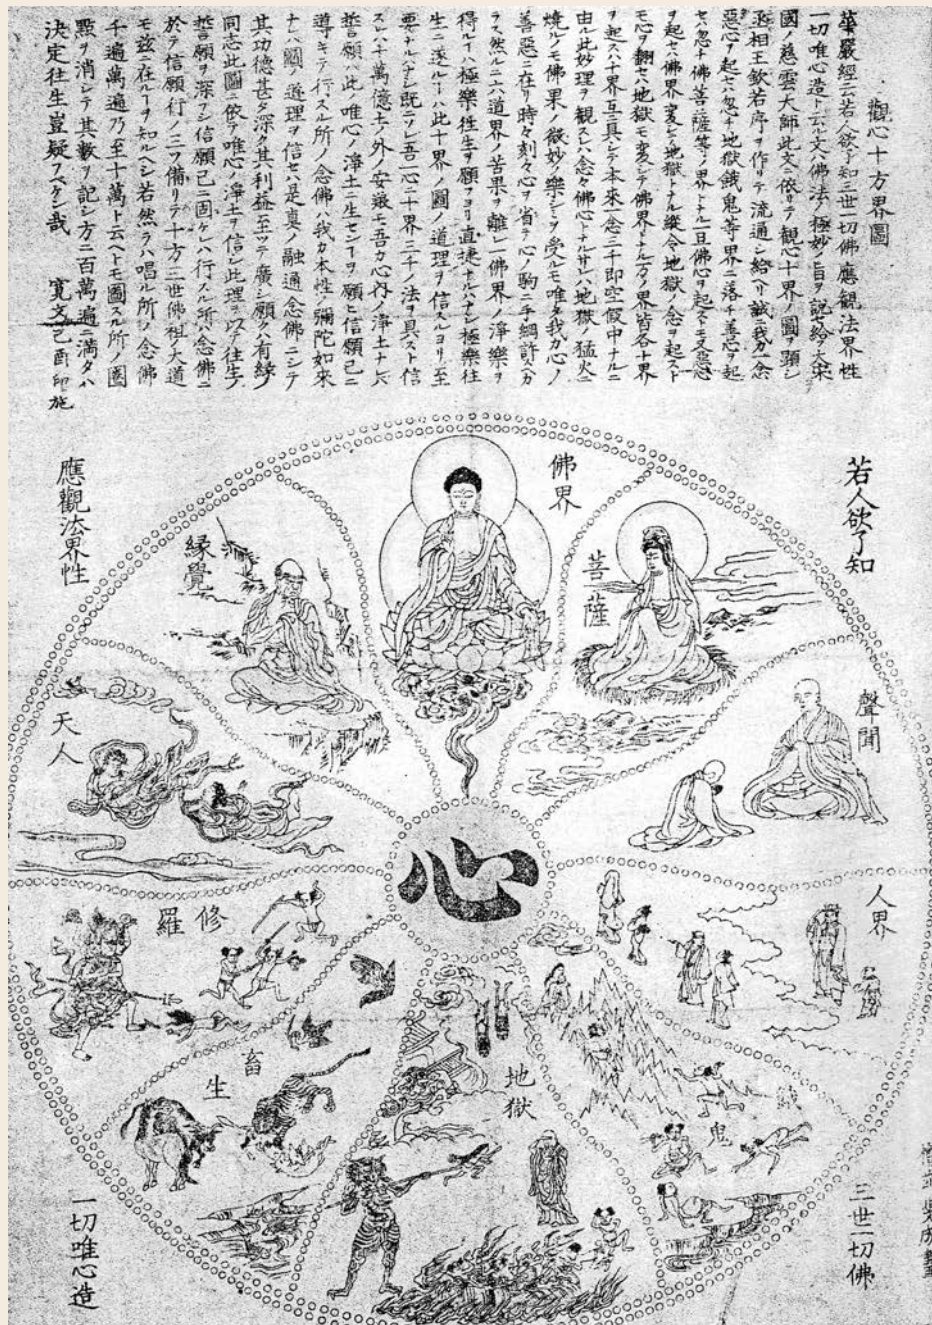 觀心十方界圖
華嚴經云若人欲了知三世一切佛應觀法界性
一切唯心造ト云ル文ハ佛法ノ極妙ノ旨ヲ説給ケ大宋
國ノ慈雲大師此文ニ依リテ観心十界ノ圖ヲ顕シ
丞相王欽若序ヲ作リテ流通シ給ヘリ誠ニ我カ一念
惡心ヲ起セハ忽チ地獄餓鬼等界ニ落チ善心ヲ起
セハ忽ト佛菩薩等ノ界トナル一旦佛心ヲ起ストモ又惡念
ヲ起セハ佛界変シテ地獄トナル縦令地獄ノ念ヲ起スト
モ心ヲ翻セハ地獄モ変シテ佛界トナル万ノ界皆各十界
ヲ起スハ界互具シテ本來一念三千即空假中ナルニ
由ル此妙理ヲ観スレハ念々佛心トナルサレハ地獄ノ猛火ニ
燒ルヽモ佛果ノ微妙ノ樂シミヲ受ルモ唯タ我カ心ノ
善惡ニ在リ時々刻々心ヲ省テ心ノ駒ニ手綱許スヘカ
ラス然ルニ六道界ノ苦果ヲ離レ佛界ノ淨樂ヲ
得ルハ極樂往生ヲ願フヨリ直捷ナルハナシ極樂往
生ニ遂ルハ此十界ノ圖ノ道理ヲ信スルヨリ至
要ナルハナシ既ニソレ吾一心ニ十界三千ノ法ヲ具スト信
スレハ十萬億土ノ外ノ安養モ吾カ心内ノ淨土ナレハ
誓願ハ此唯心ノ淨土ニ生センヿヲ願ヒ信願已ニ
導キテ行スル所ノ念佛ハ我カ本性ノ彌陀如來
ナレハ圖ノ道理ヲ信セハ是真ノ融通念佛ニシテ
其功德甚タ深ク其利益至ツテ廣シ願クハ有縁ノ
同志此圖ニ依テ唯心ノ淨土ヲ信シ此理ヲ以テ往生ノ
誓願ヲ深フシ信願已ニ固ケレハ行スル所ハ念佛ニ
於テ信願行ノ三ツ備リテ十方三世佛祖ノ大道
モ茲ニ在ルヿヲ知ルヘシ若然ラハ唱ル所ノ念佛
千遍萬遍乃至十萬ト云ヘトモ圖スル所ノ圏
點ヲ消シテ其數ヲ記シ方ニ百萬遍ニ満タハ
決定往生豈疑フヘケン哉 寛文己酉印施
若人欲了知
三世一切佛
應觀法界性
一切唯心造
佛界
菩薩
縁覺
聲聞
天人
人界
修羅
畜生
餓鬼
地獄
心